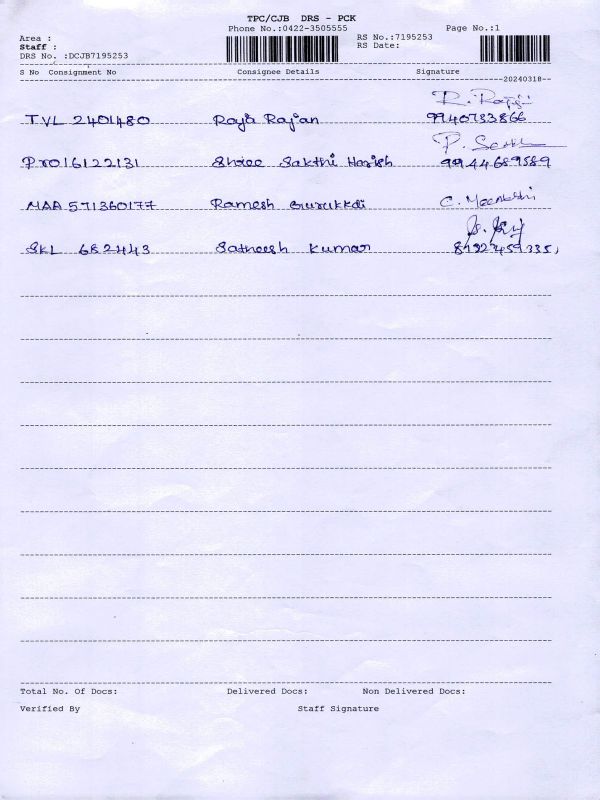 TPC/CJB DRS - PCK
Phone No.:0422-3505555
Page No.:1
Area :
RS No.:7195253
Staff :
RS Date:
DRS No. :DCJB7195253
S No Consignment No Consignee Details Signature
20240318
R. Rajaji
TVL 2401480 Raja Rajan 9940733866
P.
PRO16122131 Shree Sakthi Harish 9944689589
MAA 571360177 Ramesh Gurukkal C. Meenakshi
SKL 682443 Satheesh Kumar
Total No. Of Docs: Delivered Docs: Non Delivered Docs:
Verified By Staff Signature